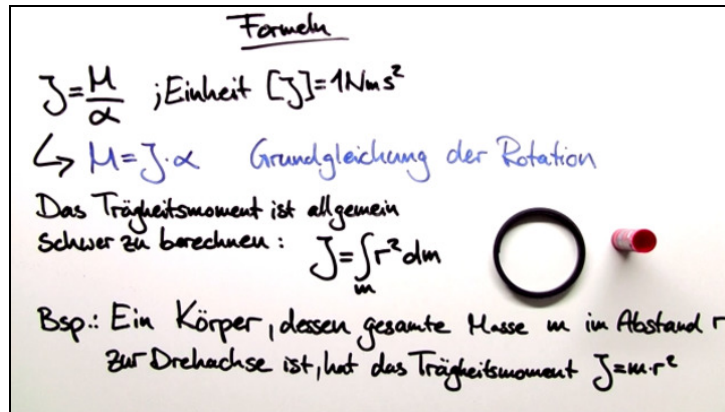 Formeln
J = M/α ; Einheit [J] = 1Nms²
↳ M = J·α Grundgleichung der Rotation
Das Trägheitsmoment ist allgemein
schwer zu berechnen: J = ∫ₘ r² dm
Bsp.: Ein Körper, dessen gesamte Masse m im Abstand r
zur Drehachse ist, hat das Trägheitsmoment J = m·r²